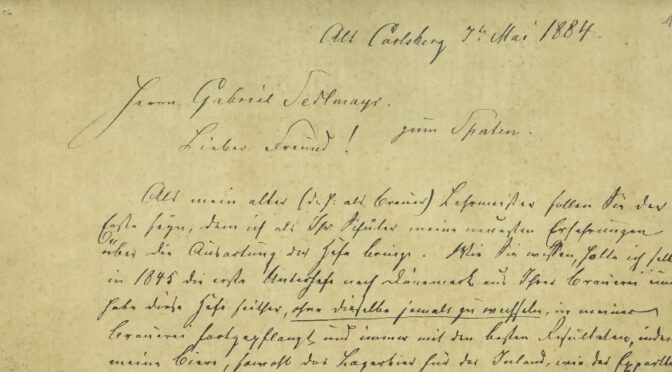 Alt Carlsberg 7th Mai 1884.
Herrn Gabriel Sedlmayr.
zum Spaten.
Lieber Freund!
Als mein alter (d. h. als Brauer) Lehrmeister sollen Sie der
Erste seyn, dem ich als Ihr Schüler meine neuesten Erfahrungen
über die Ausartung der Hefe bringe. Wie Sie wissen, holte ich
in 1845 die erste Unterhefe nach Dänemark aus Ihrer Brauerei
habe diese Hefe seither, ohne dieselbe jemals zu wechseln, in meiner
Brauerei fortgepflanzt und immer mit den besten Resultaten, indem
meine Biere, sowohl das Lagerbier für das Inland, wie das